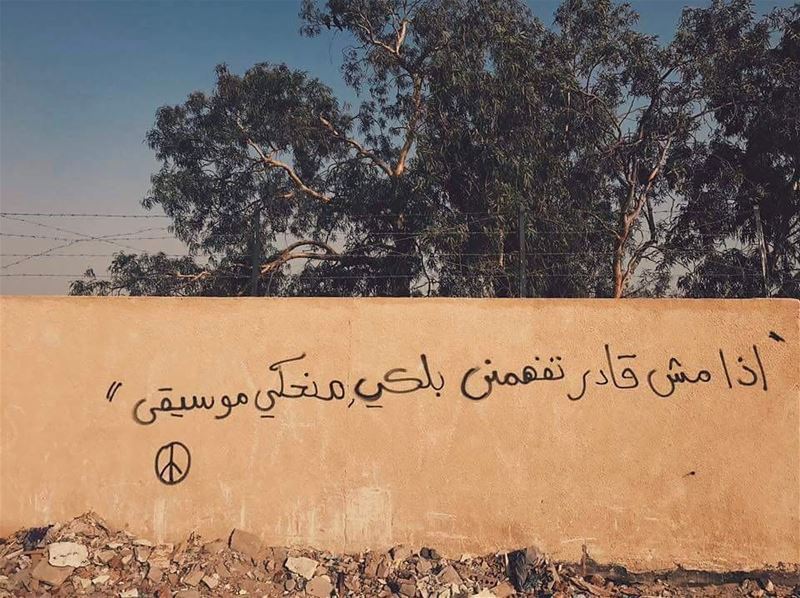 " اذا مش قادر تفهمني بلكي منحكي موسيقى "